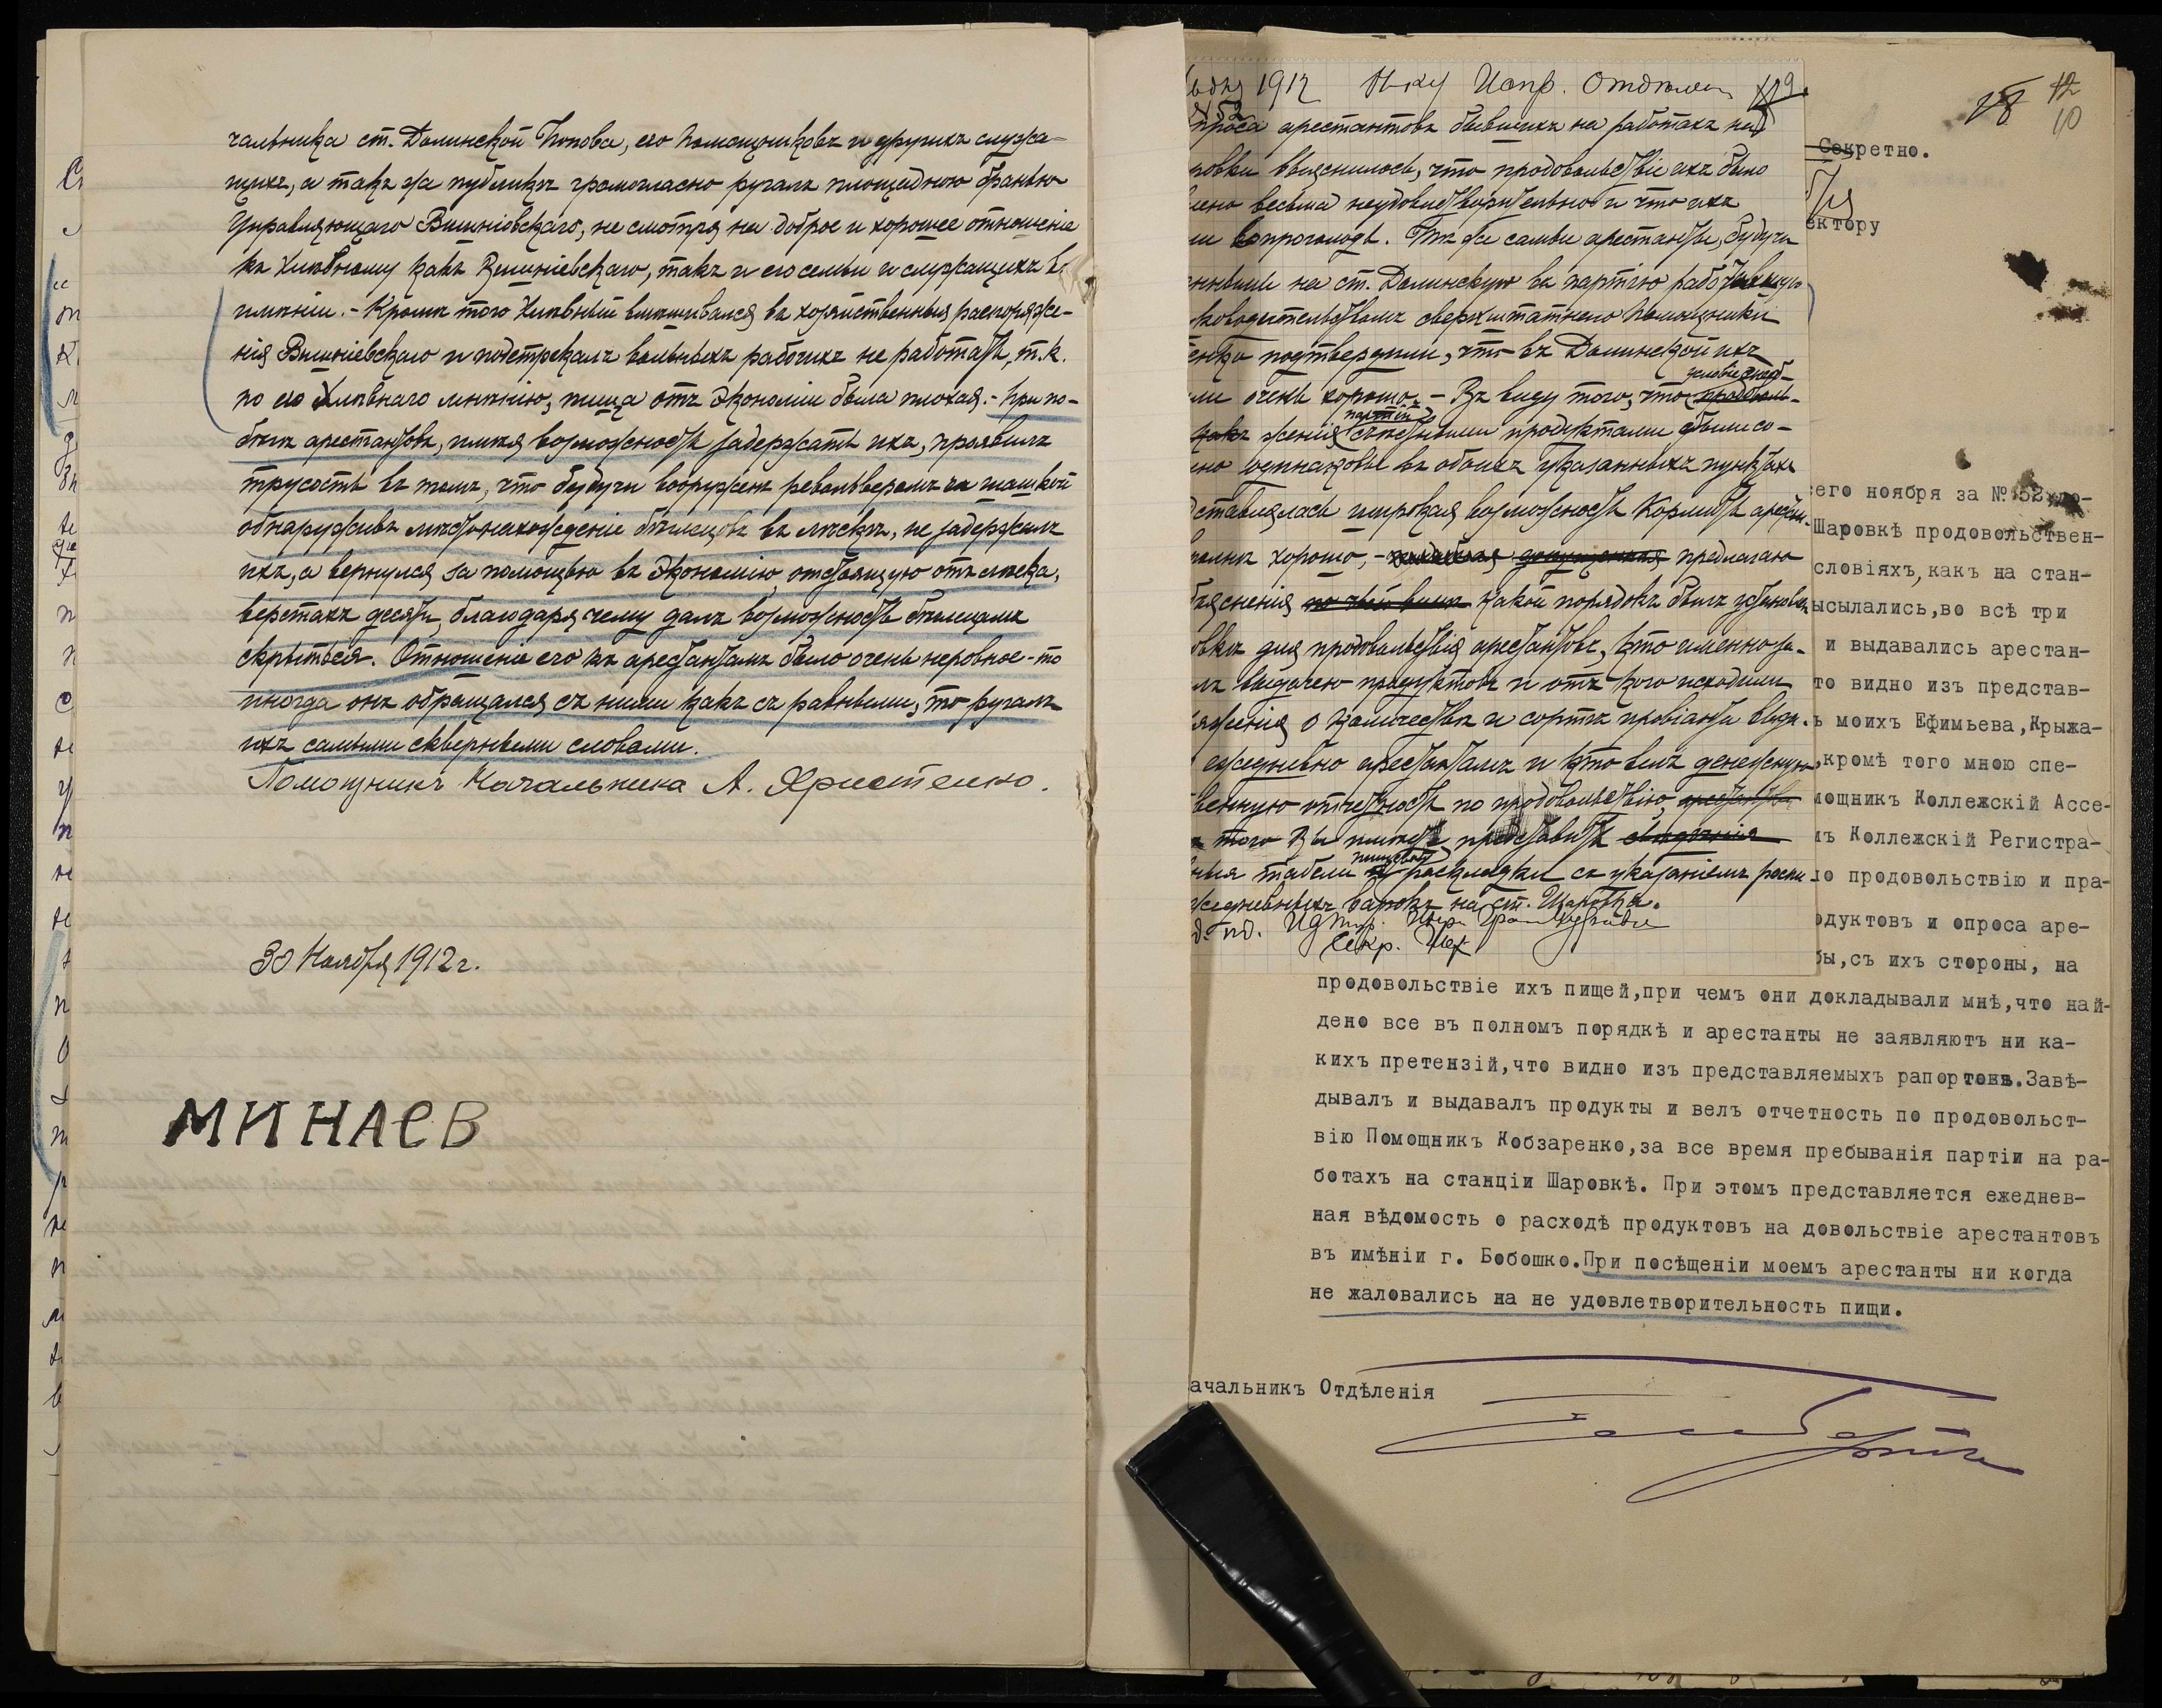 чальника ст. Долинской Попова, его помощниковъ и другихъ служа-
щихъ, а такъ же публикѣ громогласно ругалъ площадною бранью
Управляющаго Вишніовскаго, не смотря на доброе и хорошее отношеніе
къ Хмѣвному какъ Вишніевскаго, такъ и его семьи и служащихъ въ
имѣніи. - Кромѣ того Хмѣвный вмѣшивался въ хозяйственныя распоряже-
нія Вишніевскаго и подстрекалъ вольныхъ рабочихъ не работать, т.к.
по его Хмѣвнаго мнѣнію, пища отъ Экономіи была плохая. - При по-
бѣгѣ арестантовъ, имѣя возможность задержать ихъ, проявилъ
трусость въ томъ, что будучи вооруженъ револьверомъ и шашкой
обнаруживъ мѣстонахожденіе бѣглецовъ въ лѣску, не задержалъ
ихъ, а вернулся за помощью въ Экономію, отстоящую отъ лѣска,
верстахъ десять, благодаря чему далъ возможность бѣглецамъ
скрыться. Отношеніе его къ арестантамъ было очень неровное - то
иногда онъ обращался съ ними какъ съ равными, то ругалъ
ихъ самыми скверными словами.
Помощникъ Начальника А. Христенко.
30 Ноября 1912 г.
МИНАЕВ
1912 Н-ку Испр. Отдѣлен
проса арестантовъ бывшихъ на работахъ на
ровки выяснилось, что продовольствіе ихъ было
лено весьма неудовлетворительно и что ихъ
ли впроголодь. Тѣ же самые арестанты, будучи
на ст. Долинскую въ партію рабочихъ
ководительствомъ сверхштатнаго Помощника
енко подтвердили, что въ Долинской ихъ
ли очень хорошо. - Въ виду того, что условія снаб-
женія партій съѣстными продуктами были со-
но одинаковы въ обоихъ указанныхъ пунктахъ
дставлялась широкая возможность кормить арестан-
хорошо, - предлагаю
ъясненія какой порядокъ былъ установлен
овкѣ для продовольствія арестантовъ, кто именно за-
лъ выдачею продуктовъ и отъ кого исходили
яженія о количествѣ и сортѣ провіанта выда-
ежедневно арестантамъ и кто велъ денежную
венную отчетность по продовольствію,
того Вы имѣете представить
табели раскладки съ указаніемъ роспи
жедневныхъ варокъ на ст. Шаровка.
12
10
Секретно.
ектору
сего ноября за № 52 до-
Шаровкѣ продовольствен-
словіяхъ, какъ на стан-
ысылались, во всѣ три
и выдавались арестан-
то видно изъ представ-
ъ моихъ Ефимьева, Крыжа-
,кромѣ того мною спе-
мощникъ Коллежскій Ассе-
мъ Коллежскій Регистра-
ло продовольствію и пра-
одуктовъ и опроса аре-
бы,съ ихъ стороны, на
продовольствіе ихъ пищей,при чемъ они докладывали мнѣ,что най-
дено все въ полномъ порядкѣ и арестанты не заявляютъ ни ка-
кихъ претензій,что видно изъ представляемыхъ рапортовъ.Завѣ-
дывалъ и выдавалъ продукты и велъ отчетность по продовольст-
вію Помощникъ Кобзаренко,за все время пребыванія партіи на ра-
ботахъ на станціи Шаровкѣ. При этомъ представляется ежеднев-
ная вѣдомость о расходѣ продуктовъ на довольствіе арестантовъ
въ имѣніи г. Бобошко.При посѣщеніи моемъ арестанты ни когда
не жаловались на не удовлетворительность пищи.
ачальникъ Отдѣленія